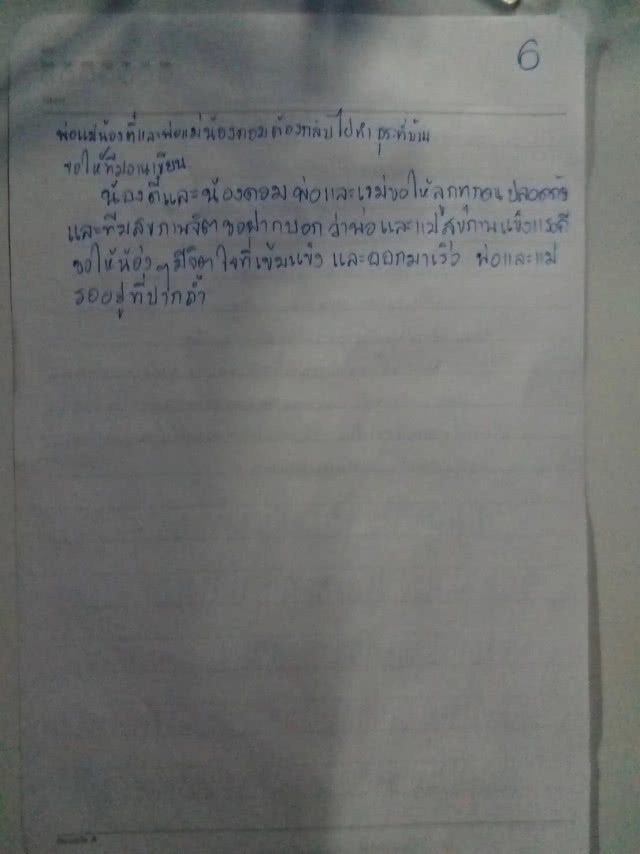 6
พ่อแม่น้องตี๋และพ่อแม่น้องดอมต้องกลับไปทำธุระที่บ้าน
ขอให้ทีมงานเขียน
น้องตี๋และน้องดอม พ่อและแม่ขอให้ลูกทุกคนปลอดภัย
และทีมสุขภาพจิต ขอฝากบอกว่าพ่อและแม่สุขภาพแข็งแรงดี
ขอให้น้องๆ มีจิตใจที่เข้มแข็ง และออกมาเร็วๆ พ่อและแม่
รออยู่ที่ปากถ้ำ